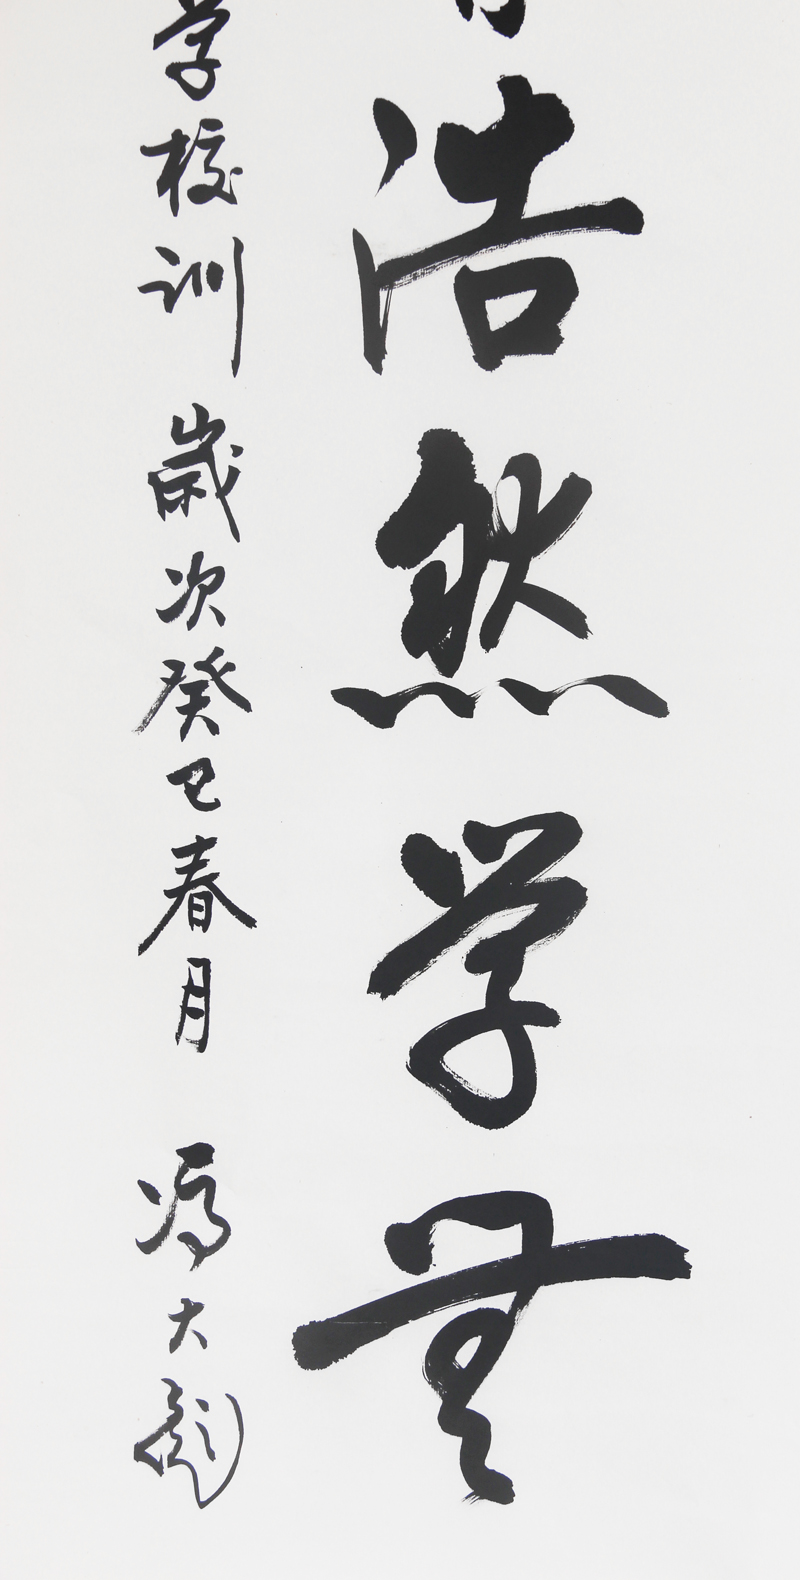 浩然学無
学校训 歲次癸巳春月 冯大彪